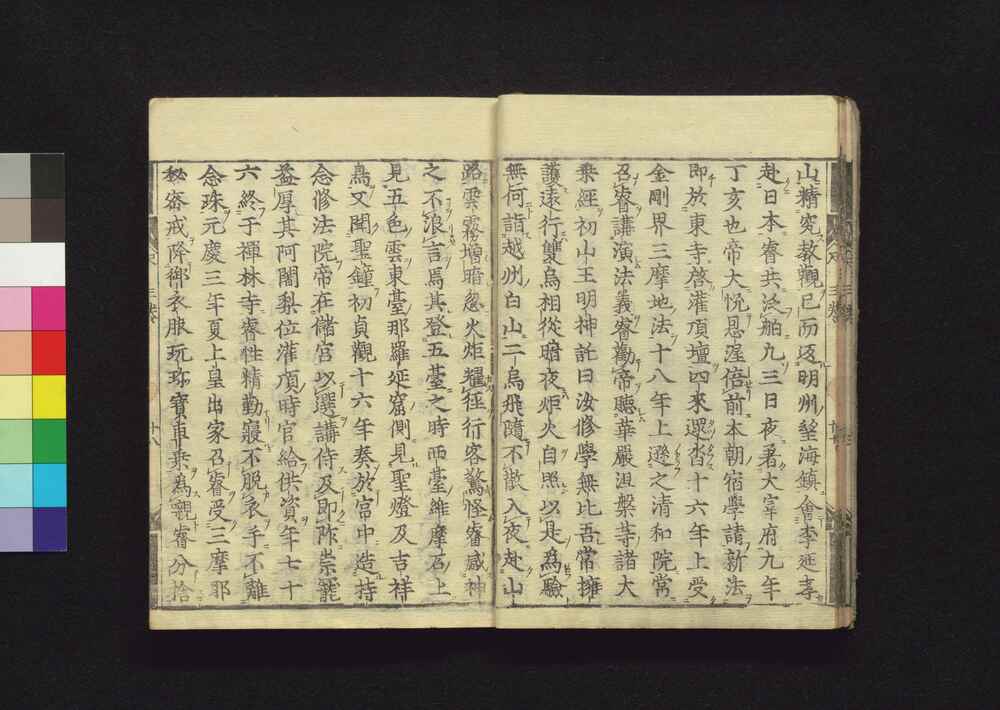 山精究教觀已而返明州望海鎮會李延孝
赴日本睿共泛舶九三日夜著大宰府九年
丁亥也帝大悅恩渥倍前本朝宿學請新法
即於東寺啓灌頂壇四來遝沓十六年上受
金剛界三摩地法十八年上遜之清和院常
召睿講演法義睿勸帝聽華嚴涅槃等諸大
乘經初山王明神託曰汝修學無比吾常擁
護遠行雙烏相從暗夜炬火自照以是爲驗
無何詣越州白山二烏飛隨不散入夜赴山
路雲霧增暗忽火炬耀徑行客驚怪睿感神
之不浪言焉其登五臺之時西臺維摩石上
見五色雲東臺那羅延窟側見聖燈及吉祥
鳥又聞聖鐘初貞觀十六年奏於宮中造持
念修法院帝在儲宮以選講侍及即祚崇寵
益厚其阿闍梨位灌頂時官給供資年七十
六終于禪林寺睿性精勤寢不脫衣手不離
念珠元慶三年夏上皇出家召睿受三摩耶
秘密戒降御衣服玩珍寶車乘爲嚫睿分捨
三 十八